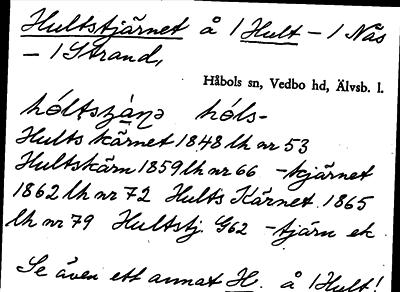 Hultstjärnet å 1 Hult – 1 Nås
– 1 Strand,
Håbols sn, Vedbo hd, Älvsb. l.
hóls-
Hults kärnet 1848 lh nr 53
Hultskärn 1859 lh nr 66 – kjärnet
1862 lh nr 72 Hults Kärnet 1865
lh nr 79 Hultstj. G62 – tjärn ek
Se även ett annat H. å 1 Hult!